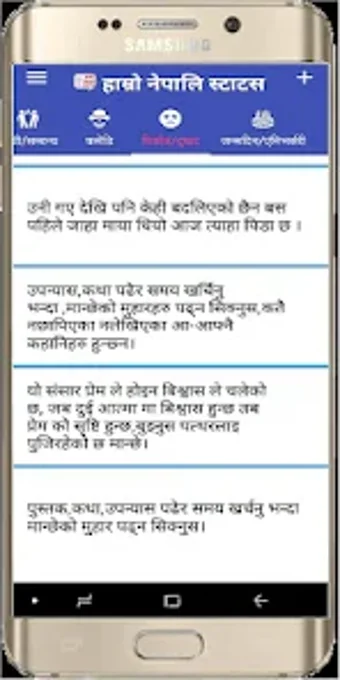 SAMSUNG
हाम्रो नेपालि स्टाटस
उनी गए देखि पनि केही बदलिएको छैन बस
पहिले जाहा माया थियो आज त्याहा पिडा छ ।
उपन्यास,कथा पढेर समय खर्चिनु
भन्दा ,मान्छेको मुहारहरु पढ्न सिक्नुस,कतै
नछापिएका नलेखिएका आ-आफ्नै
कहानिहरु हुन्छन।
यो संसार प्रेम ले होइन बिश्वास ले चलेको
छ, जब दुई आत्मा मा बिश्वास हुन्छ तब
प्रेम को सृष्टि हुन्छ,बुझ्नुस पत्थरलाइ
पुजिरहेको छ मान्छे।
पुस्तक,कथा,उपन्यास पढेर समय खर्चनु भन्दा
मान्छेको मुहार पढ्न सिक्नुस।